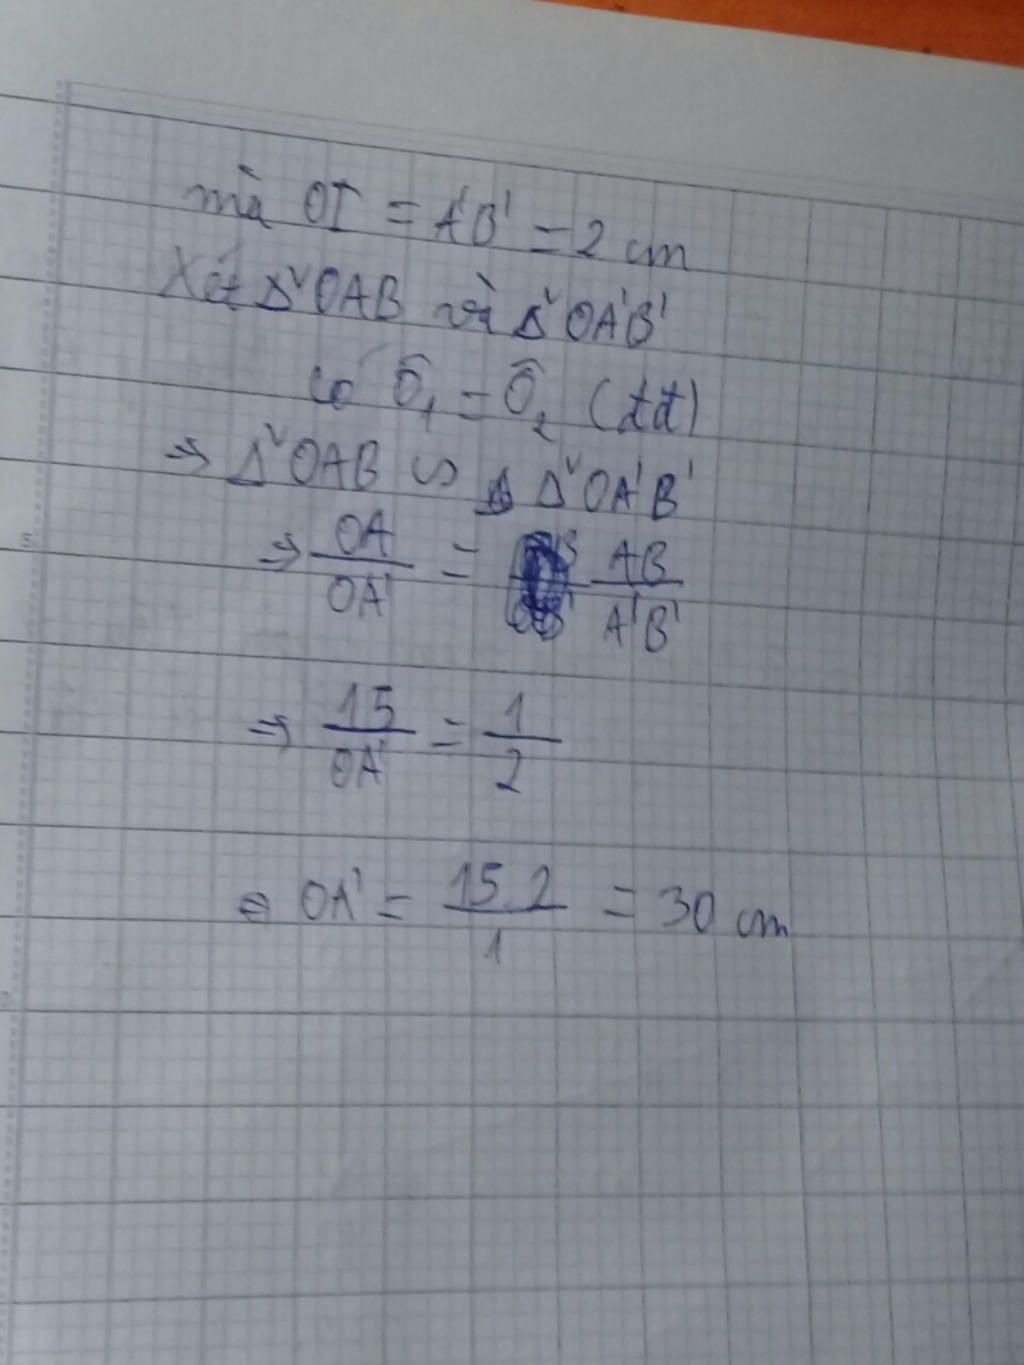 mà OI = A'B' = 2 cm
Xét Δᵛ OAB và Δᵛ OA'B'
có Ô₁ = Ô₂ (đđ)
⇒ Δᵛ OAB ∽ Δᵛ OA'B'
⇒ OA/OA' = AB/A'B'
⇒ 15/OA' = 1/2
⇒ OA' = 15.2/1 = 30 cm